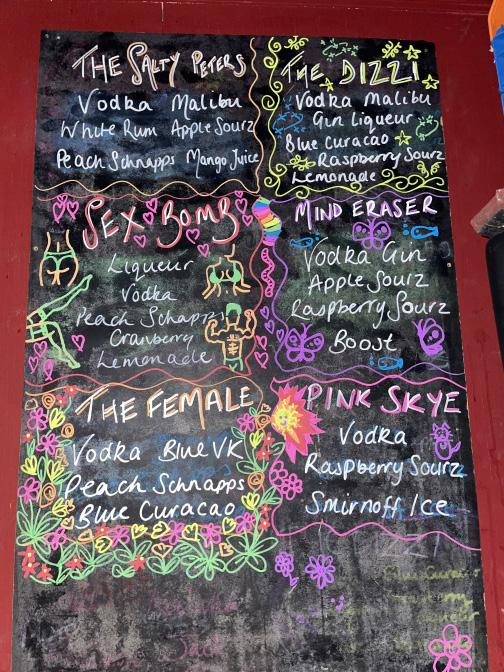 THE SALTY PETERS
Vodka Malibu
White Rum Apple Sourz
Peach Schnapps Mango Juice
THE DIZZI
Vodka Malibu
Gin Liqueur
Blue Curacao
Raspberry Sourz
Lemonade
SEX BOMB
Liqueur
Vodka
Peach Schapps
Cranberry
Lemonade
MIND ERASER
Vodka Gin
Apple Sourz
Raspberry Sourz
Boost
THE FEMALE
Vodka Blue VK
Peach Schnapps
Blue Curacao
PINK SKYE
Vodka
Raspberry Sourz
Smirnoff Ice